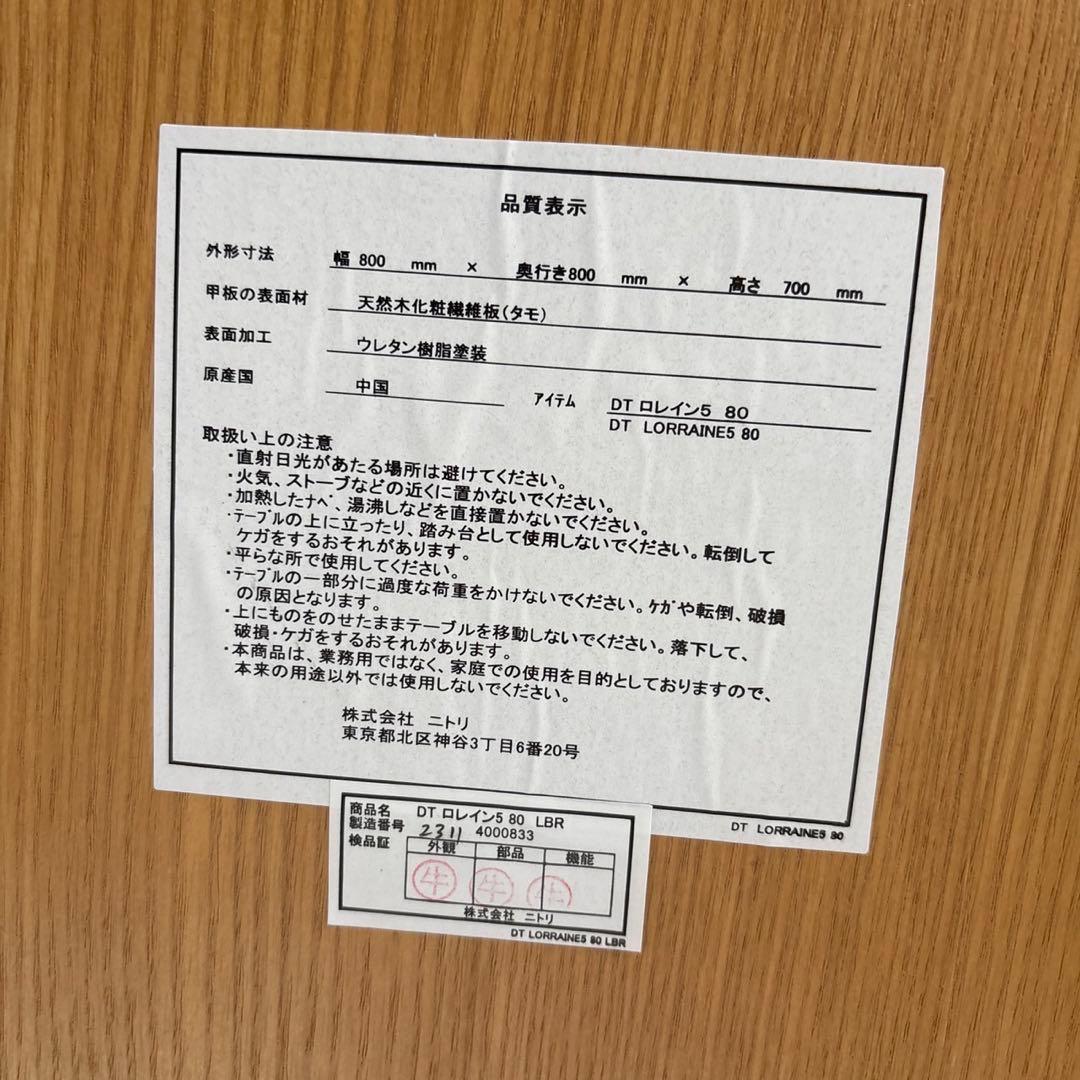 品質表示
外形寸法 幅 800 mm × 奥行き800 mm × 高さ 700 mm
甲板の表面材 天然木化粧繊維板(タモ)
表面加工 ウレタン樹脂塗装
原産国 中国 アイテム DT ロレイン5 80
DT LORRAINE5 80
取扱い上の注意
・直射日光があたる場所は避けてください。
・火気、ストーブなどの近くに置かないでください。
・加熱したナベ、湯沸しなどを直接置かないでください。
・テーブルの上に立ったり、踏み台として使用しないでください。転倒して
ケガをするおそれがあります。
・平らな所で使用してください。
・テーブルの一部分に過度な荷重をかけないでください。ケガや転倒、破損
の原因となります。
・上にものをのせたままテーブルを移動しないでください。落下して、
破損・ケガをするおそれがあります。
・本商品は、業務用ではなく、家庭での使用を目的としておりますので、
本来の用途以外では使用しないでください。
株式会社 ニトリ
東京都北区神谷3丁目6番20号
DT LORRAINE5 80
商品名 DT ロレイン5 80 LBR
製造番号 2311 4000833
検品証 外観 部品 機能
牛 牛 牛
株式会社 ニトリ
DT LORRAINE5 80 LBR